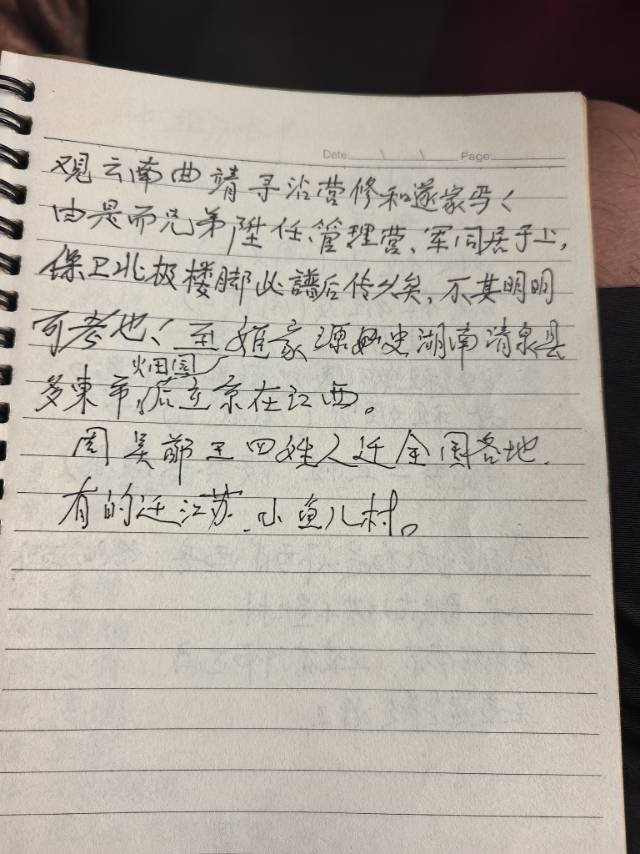 Date: / / Page:
观云南曲靖寻沿营修和遂家焉く
由是而兄弟陞任、管理营、军同居于上,
保卫北极楼脚此譜后传久矣,不其明明
可考也く至姬家源 史湖南清泉县
畑围
多東市, 在江西。
周吴郑王四姓人迁全国各地.
有的迁江苏、小鱼儿村。